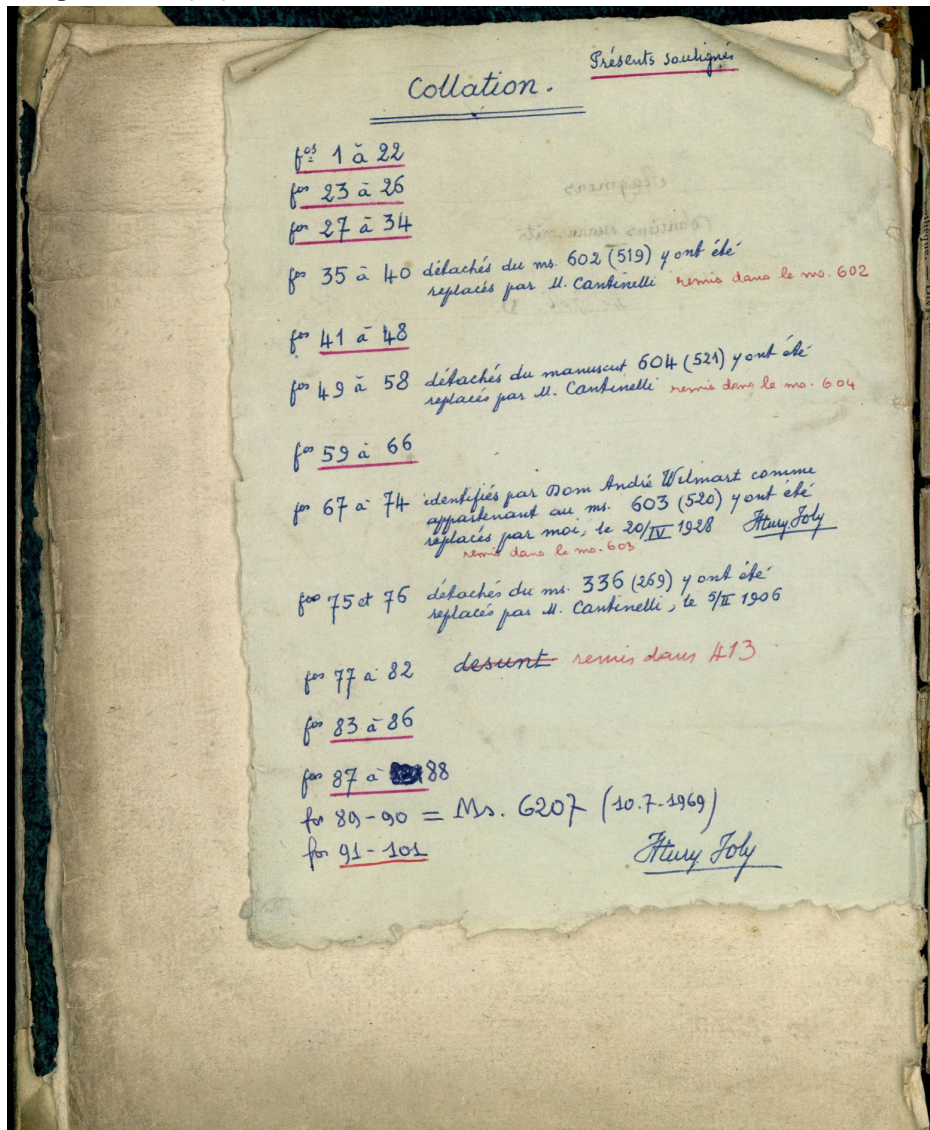 Présents soulignés
Collation.
fos 1 à 22
fos 23 à 26
fos 27 à 34
fos 35 à 40 détachés du ms. 602 (519) y ont été
replacés par M. Cantinelli remis dans le ms. 602
fos 41 à 48
fos 49 à 58 détachés du manuscrit 604 (521) y ont été
replacés par M. Cantinelli remis dans le ms. 604
fos 59 à 66
fos 67 à 74 identifiés par Dom André Wilmart comme
appartenant au ms. 603 (520) y ont été
replacés par moi, le 20/IV 1928 Henry Joly
remis dans le ms. 603
fos 75 et 76 détachés du ms. 336 (269) y ont été
replacés par M. Cantinelli, le 5/II 1906
fos 77 à 82 desunt remis dans 413
fos 83 à 86
fos 87 à 88
fos 89-90 = Ms. 6207 (10.7-1969)
fos 91-101
Henry Joly